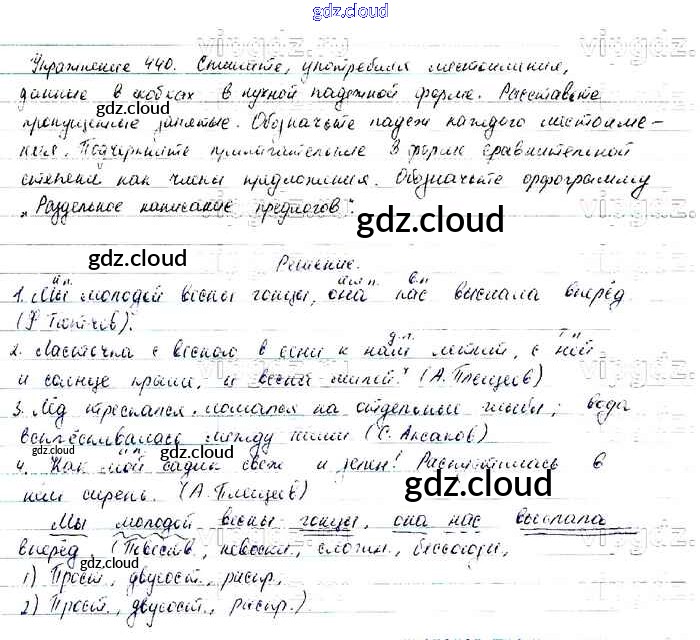 gdz.cloud
Упражнение 440. Спишите, употребляя местоимения,
данные в скобках в нужной падежной форме. Расставьте
gdz.cloud
пропущенные запятые. Обозначьте падеж каждого местоиме-
ния. Подчеркните прилагательные в форме сравнительной
степени как члены предложения. Обозначьте орфограмму
„Раздельное написание предлогов".
gdz.cloud
gdz.cloud
Решение.
и.п. и.п. в.п.
1. Мы молодой весны гонцы, она нас выслала вперёд
(Ф Тютчев).
д.п. т.п.
2. Ласточка с весною в сени к нам летит, с ней
и солнце краше, и весна милей." (А. Плещеев)
gdz.cloud
3. Лёд трескался, ломался на отдельные глыбы; вода
всплёскивалась между ними (С. Аксаков)
и.п.
4. Как мой садик свеж и зелен! Распустилась в
нём сирень. (А. Плещеев)
gdz.cloud
Мы молодой весны гонцы, она нас выслала
вперёд. (Повеств., невоскл., сложн., бессоюзн,
gdz.cloud
1) Прост, двусост., распр.,
2) Прост., двусост., распр.)
gdz.cloud